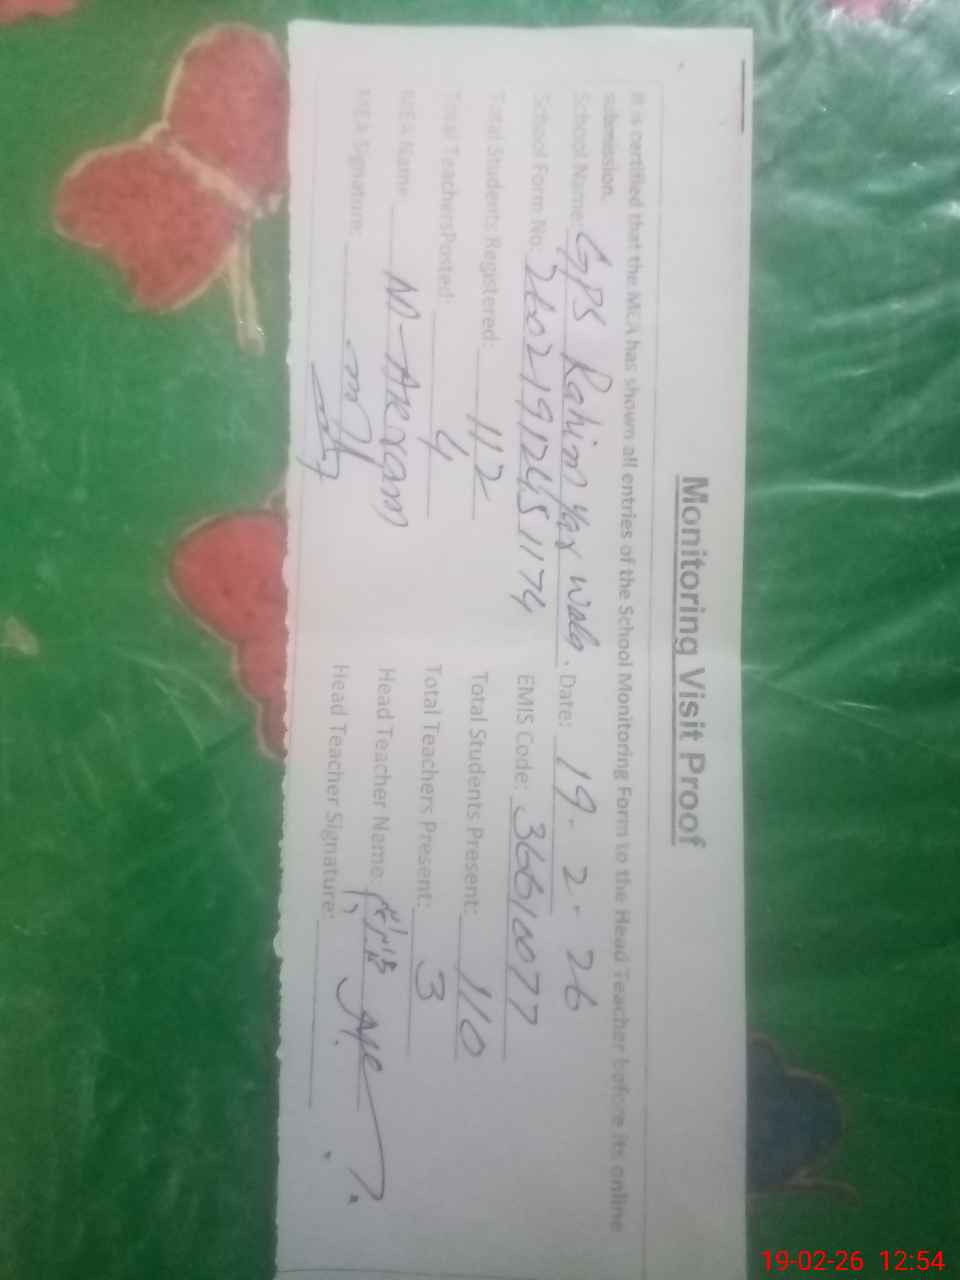 Monitoring Visit Proof
It is certified that the MEA has shown all entries of the School Monitoring Form to the Head Teacher before its online
submission.
School Name: GPS Rahim Yar Wala. Date: 19. 2. 26
School Form No: 26021912451174 EMIS Code: 36610077
Total Students Registered: 112 Total Students Present: 110
Total TeachersPosted: 4 Total Teachers Present: 3
MEA Name: M-Akram Head Teacher Name:
MEA Signature: Head Teacher Signature:
19-02-26 12:54